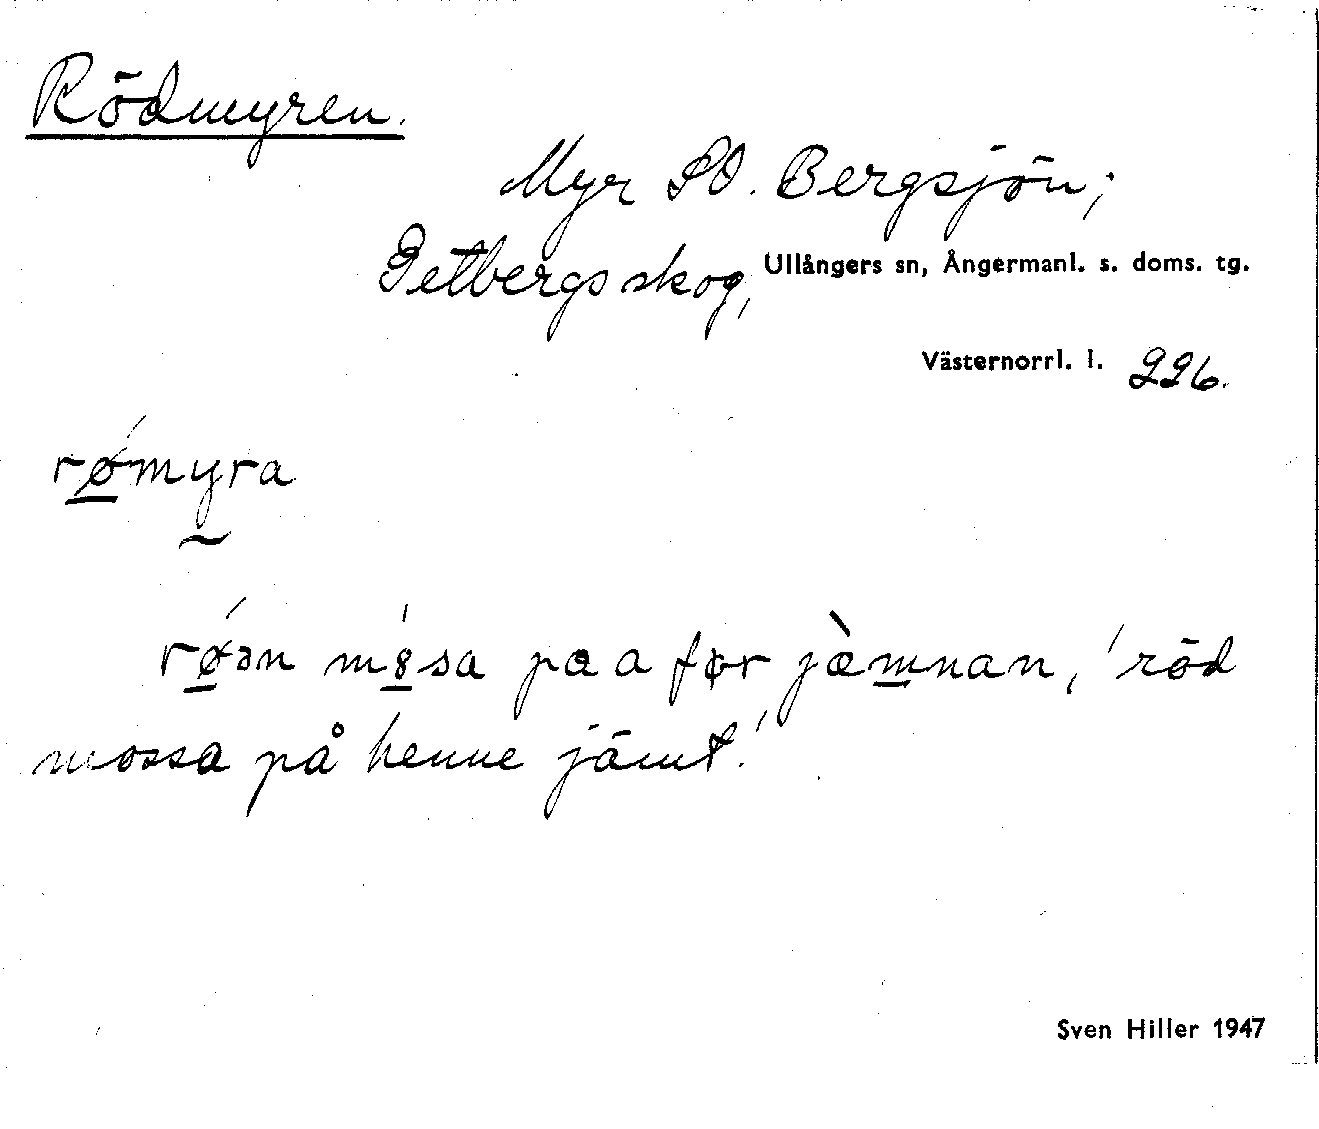 Rödmyren.
Myr SO. Bergsjön;
Getbergsskog, Ullångers sn, Ångermanl. s. doms. tg.
Västernorrl. l. 226.
rǿ̲myra
rǿ̲ən mo̲̍sa pa a før jæ̀m̲nan, 'röd
mossa på henne jämt.'
Sven Hiller 1947